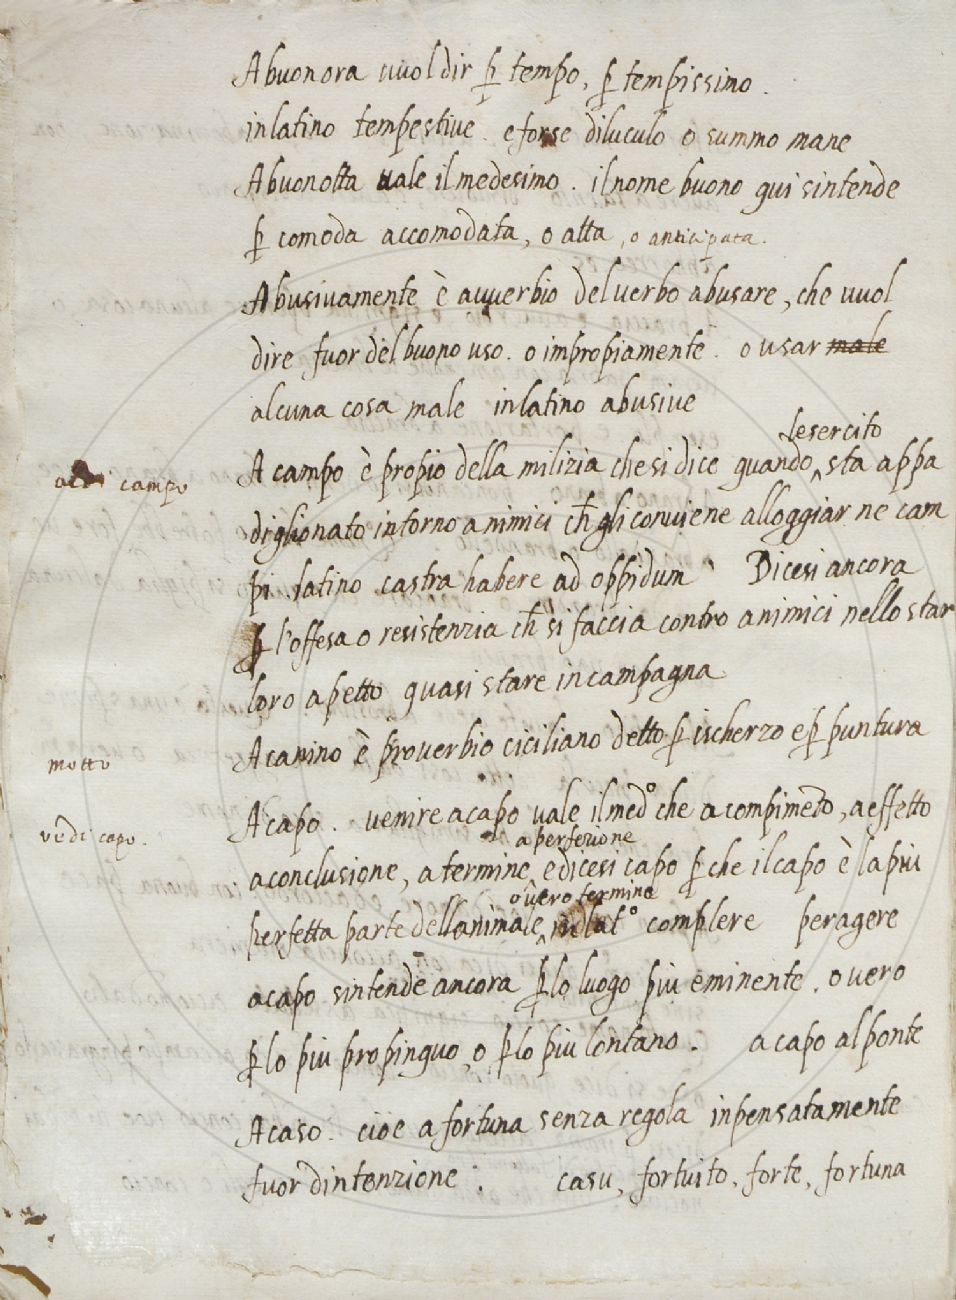 Abuonora vuol dir ꝑ tempo, ꝑ tempissimo.
in latino tempestive. e forse diluculo o summo mane
Abuonotta vale il medesimo. il nome buono qui sintende
ꝑ comoda accomodata, o atta, o anticipata.
Abusivamente è avverbio del verbo abusare, che vuol
dire fuor del buono uso. o impropiamente. o usar male
alcuna cosa male in latino abusive
lesercito
A campo è propio della milizia che si dice quando sta appa
campo
diglionato intorno a nimici ch̃ gli conviene alloggiar ne cam
pi. latino castra habere ad oppidum Dicesi ancora
ꝑ l'offesa o resistenzia ch̃ si faccia contro a nimici nello star
loro a petto quasi stare in campagna
A canino è proverbio ciciliano detto ꝑ ischerzo e ꝑ puntura
motto
A capo. venire a capo vale il med° che a compimẽto, a effetto
vedi capo.
a perfezione
a conclusione, a termine, e dicesi capo ꝑ che il capo è la piu
o vero termine
perfetta parte dell animale, in lat° complere peragere
a capo sintende ancora ꝑ lo luogo piu eminente. o vero
ꝑ lo piu propinquo, o ꝑ lo piu lontano. a capo al ponte
A caso. cioe a fortuna senza regola inpensatamente
fuor dintenzione: casu, fortuito, forte, fortuna